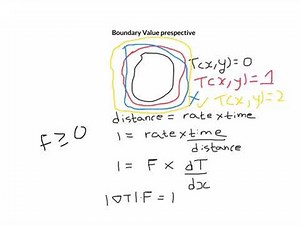 Boundary Value prespective
T(x,y)=0
T(x,y)=1
T(x,y)=2
distance = rate×time
F≥0
1 = rate×time/distance
1 = F × dT/dx
|∇T|F = 1